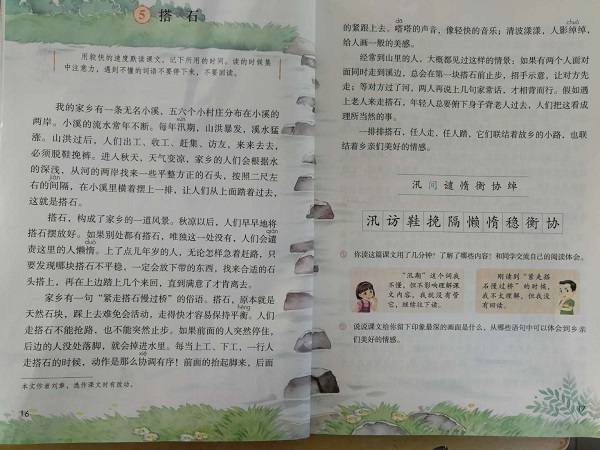 5 搭 石
用较快的速度默读课文，记下所用的时间。读的时候集
中注意力，遇到不懂的词语不要停下来，不要回读。
我的家乡有一条无名小溪，五六个小村庄分布在小溪的
两岸。小溪的流水常年不断。每年汛期，山洪暴发，溪水猛
涨。山洪过后，人们出工、收工、赶集、访友，来来去去，
必须脱鞋挽裤。进入秋天，天气变凉，家乡的人们会根据水
的深浅，从河的两岸找来一些平整方正的石头，按照二尺左
右的间隔，在小溪里横着摆上一排，让人们从上面踏过去，
这就是搭石。
搭石，构成了家乡的一道风景。秋凉以后，人们早早地将
搭石摆放好。如果别处都有搭石，唯独这一处没有，人们会谴
责这里的人懒惰。上了点儿年岁的人，无论怎样急着赶路，只
要发现哪块搭石不平稳，一定会放下带的东西，找来合适的石
头搭上，再在上边踏上几个来回，直到满意了才肯离去。
家乡有一句“紧走搭石慢过桥”的俗语。搭石，原本就是
天然石块，踩上去难免会活动，走得快才容易保持平衡。人们
走搭石不能抢路，也不能突然止步。如果前面的人突然停住，
后边的人没处落脚，就会掉进水里。每当上工、下工，一行人
走搭石的时候，动作是那么协调有序！前面的抬起脚来，后面
本文作者刘章，选作课文时有改动。
16
的紧跟上去。嗒嗒的声音，像轻快的音乐；清波漾漾，人影绰绰，
给人画一般的美感。
经常到山里的人，大概都见过这样的情景：如果有两个人面对
面同时走到溪边，总会在第一块搭石前止步，招手示意，让对方先
走；等对方过了河，两人再说上几句家常话，才相背而行。假如遇
上老人来走搭石，年轻人总要俯下身子背老人过去，人们把这看成
理所当然的事。
一排排搭石，任人走，任人踏，它们联结着故乡的小路，也联
结着乡亲们美好的情感。
汛 间 谴 惰 衡 协 绰
汛 访 鞋 挽 隔 懒 惰 稳 衡 协
你读这篇课文用了几分钟？了解了哪些内容？和同学交流自己的阅读体会。
“汛期”这个词我
不懂，但不影响理解课
文内容，我就没有管
它，继续往下读。
刚读到“紧走搭
石慢过桥”的时候，
我不太理解，但我没
有回读。
说说课文给你留下印象最深的画面是什么，从哪些语句中可以体会到乡亲
们美好的情感。
17